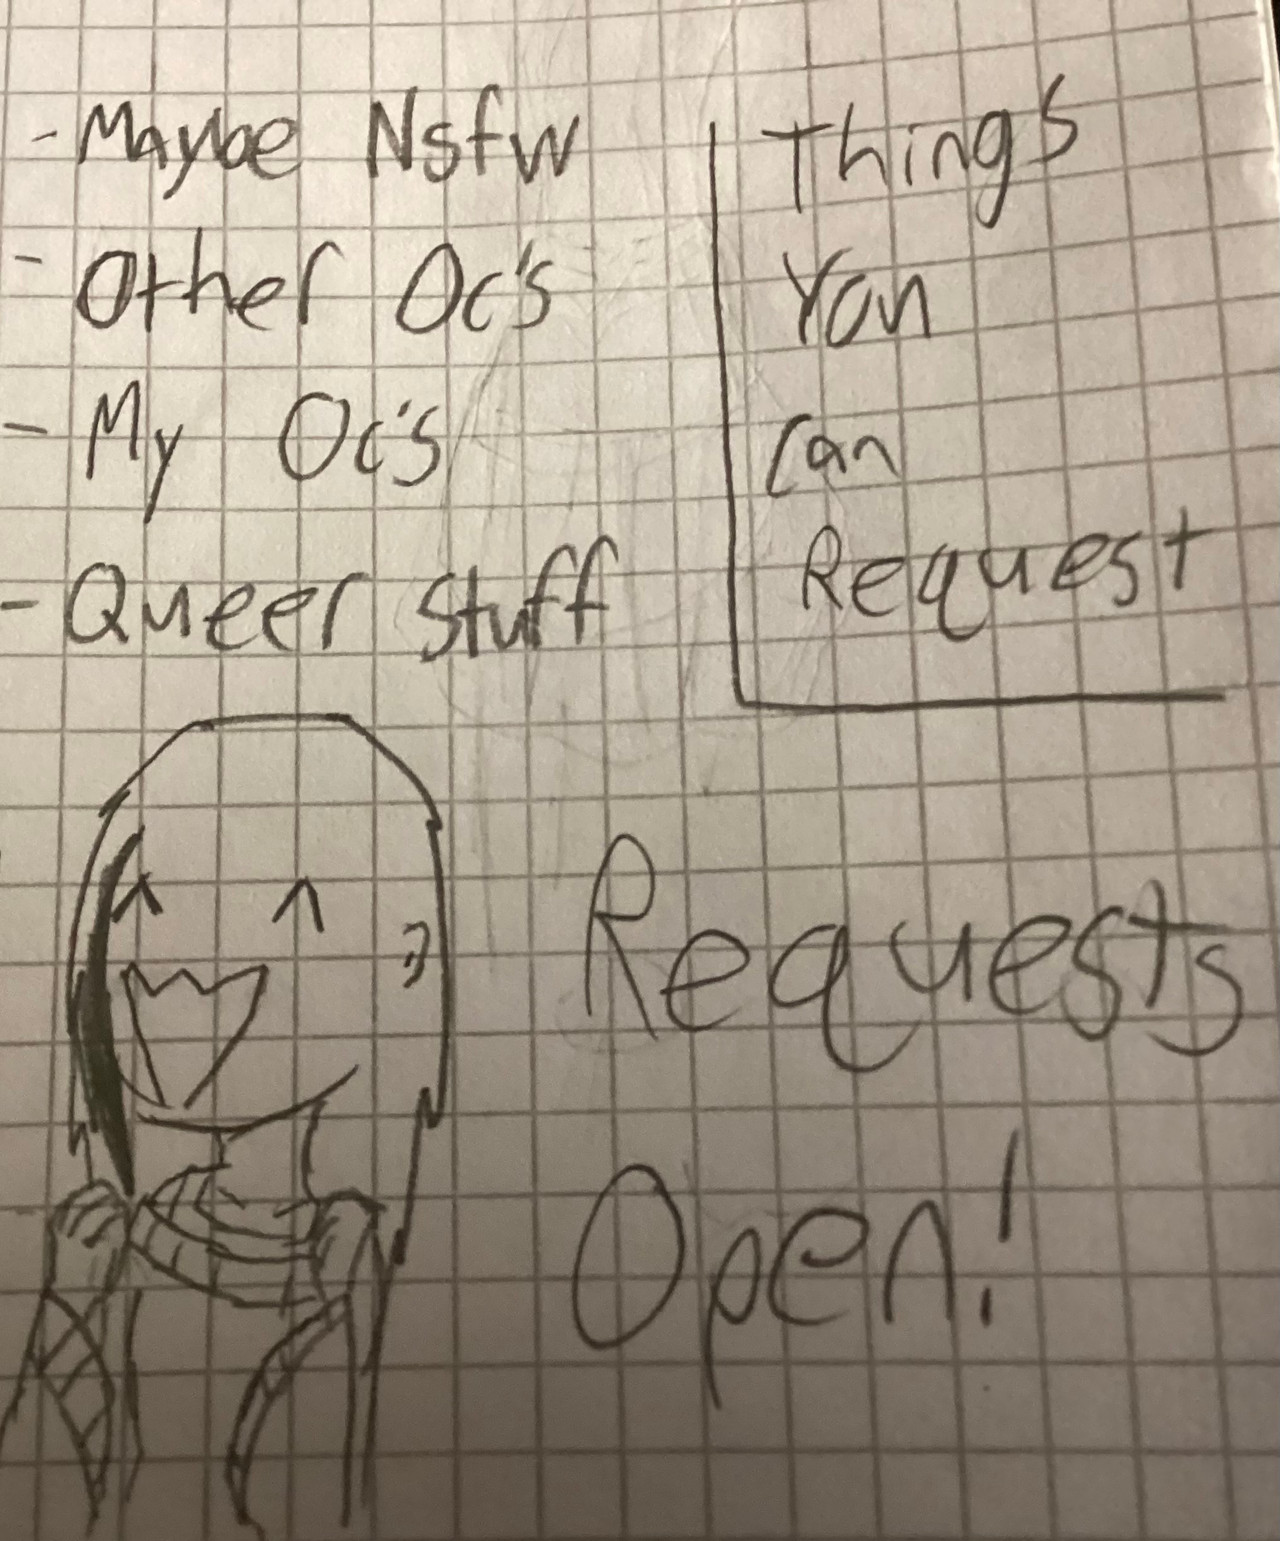 - Maybe Nsfw
- Other Oc's
- My Oc's
- Queer stuff
Things
You
Can
Request
Requests
Open!